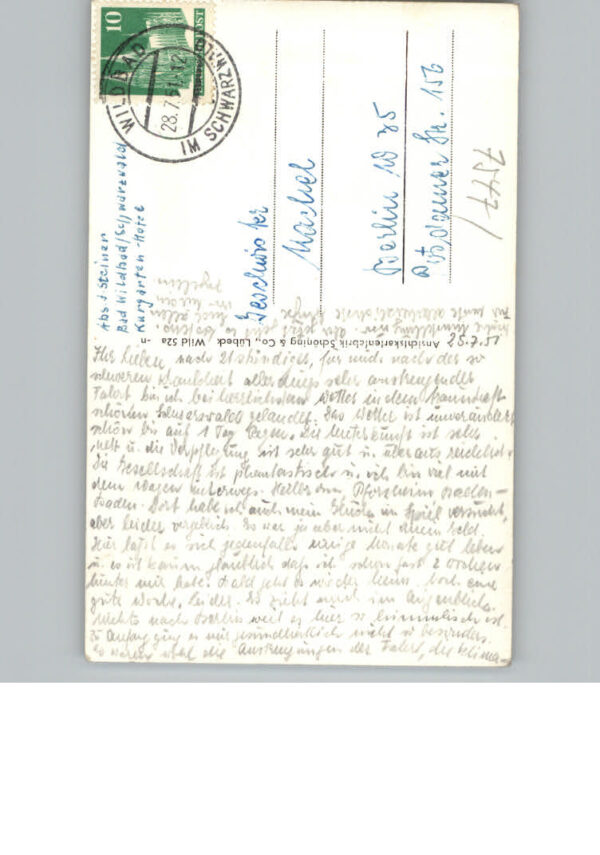 10
WILDBAD
IM SCHWARZW.
28.7.51
Abs J. Steiner
Bad Wildbad/Schwarzwald
Kurgarten-Hotel
Geschwister
Machel
Berlin W 35
Potsdamer Str. 156
7547/
Ansichtskartenfabrik Schöning & Co., Lübeck Wild 52a -n
25.7.51
Ihr Lieben, nach 21 stündiger, für mich nach der so
schweren Krankheit allerdings sehr anstrengender
Fahrt bin ich bei herrlichstem Wetter in dem
schönen Schwarzwald gelandet. Das Wetter ist unverändert
schön bis auf 1 Tag Regen. Die Unterkunft ist sehr
nett u. die Verpflegung ist sehr gut u. überaus reichlich.
Die Gesellschaft ist phantastisch u. ich bin viel mit
dem Wagen unterwegs. Pforzheim Baden-
Baden. Dort habe ich auch mein Glück im Spiel versucht,
aber leider vergeblich. Es war ja aber nicht mein Geld.
Hier läßt es sich jedenfalls einige Monate gut leben
u. es ist kaum glaublich daß ich schon fast 2 Wochen
hinter mir habe. Bald geht es wieder heim. Noch eine
gute Woche, leider. Es zieht mich im Augenblick
nichts nach Berlin weil es hier so himmlisch ist.
Zu Anfang ging es mir gesundheitlich nicht so besonders.
Es waren wohl die Anstrengungen der Fahrt, die Klima-